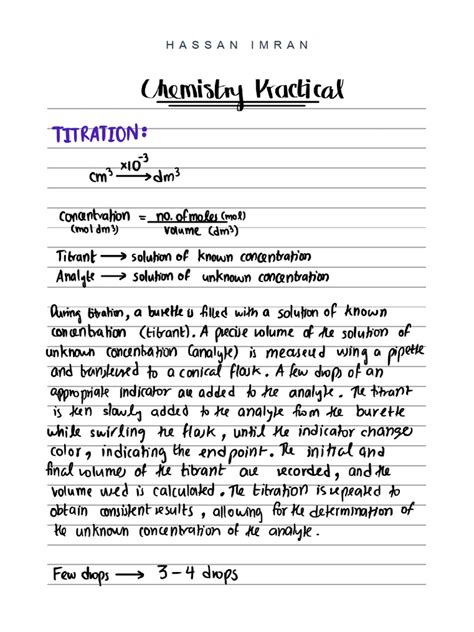 HASSAN IMRAN
Chemistry Practical
TITRATION:
×10⁻³
cm³ ⟶ dm³
Concentration = no. of moles (mol)
(mol dm³) volume (dm³)
Titrant ⟶ solution of known concentration
Analyte ⟶ solution of unknown concentration
During titration, a burette is filled with a solution of known
concentration (titrant). A precise volume of the solution of
unknown concentration (analyte) is measured using a pipette
and transferred to a conical flask. A few drops of an
appropriate indicator are added to the analyte. The titrant
is then slowly added to the analyte from the burette
while swirling the flask, until the indicator change
color, indicating the end point. The initial and
final volume of the titrant are recorded, and the
volume used is calculated. The titration is repeated to
obtain consistent results, allowing for the determination of
the unknown concentration of the analyte.
Few drops ⟶ 3-4 drops